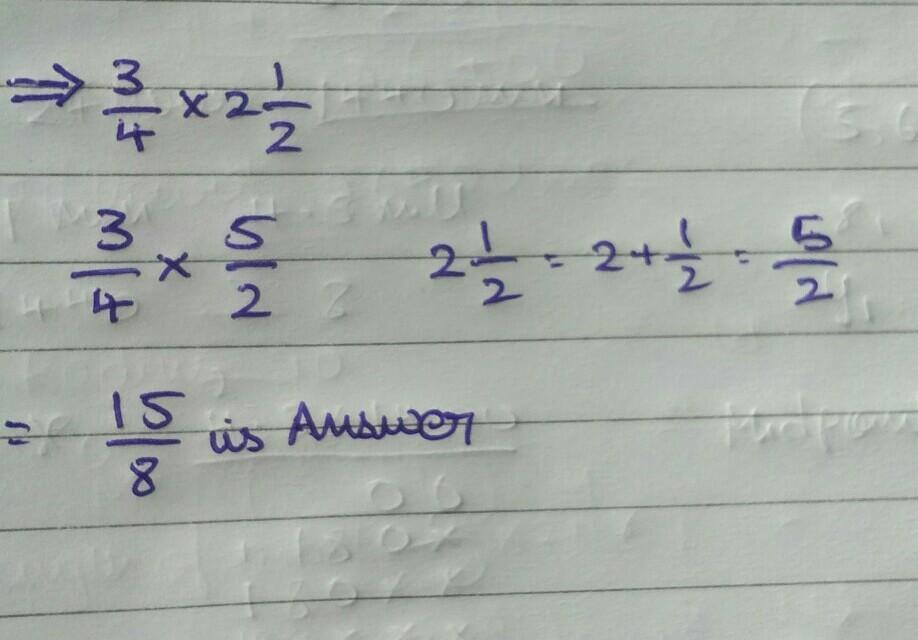 ⇒ 3/4 × 2 1/2
3/4 × 5/2    2 1/2 = 2 + 1/2 = 5/2
= 15/8 is Answer